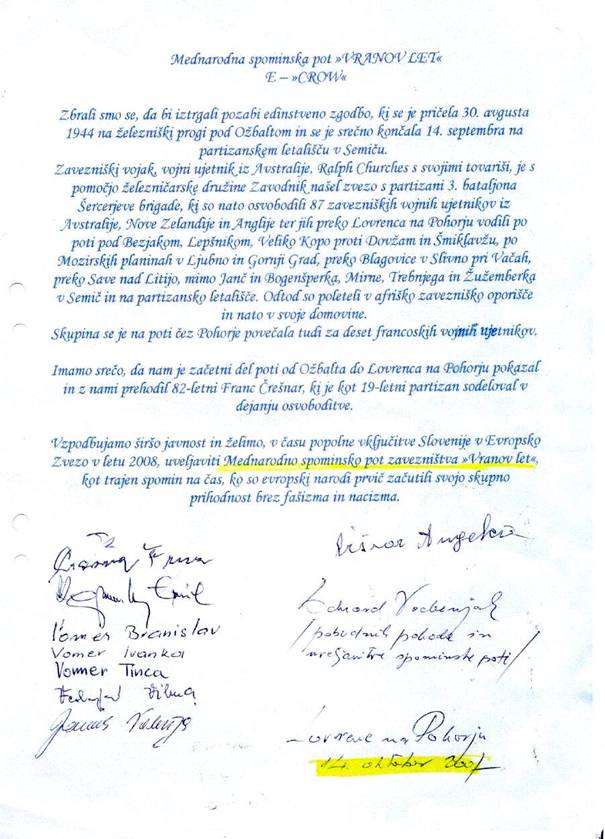 Mednarodna spominska pot »VRANOV LET«
E – »CROW«
Zbrali smo se, da bi iztrgali pozabi edinstveno zgodbo, ki se je pričela 30. avgusta
1944 na železniški progi pod Ožbaltom in se je srečno končala 14. septembra na
partizanskem letališču v Semiču.
Zavezniški vojak, vojni ujetnik iz Avstralije, Ralph Churches s svojimi tovariši, je s
pomočjo železničarske družine Zavodnik našel zvezo s partizani 3. bataljona
Šercerjeve brigade, ki so nato osvobodili 87 zavezniških vojnih ujetnikov iz
Avstralije, Nove Zelandije in Anglije ter jih preko Lovrenca na Pohorju vodili po
poti pod Bezjakom, Lepšnikom, Veliko Kopo proti Dovžam in Šmiklavžu, po
Mozirskih planinah v Ljubno in Gornji Grad, preko Blagovice v Slivno pri Vačah,
preko Save nad Litijo, mimo Janč in Bogenšperka, Mirne, Trebnjega in Žužemberka
v Semič in na partizansko letališče. Odtod so poleteli v afriško zavezniško oporišče
in nato v svoje domovine.
Skupina se je na poti čez Pohorje povečala tudi za deset francoskih vojnih ujetnikov.
Imamo srečo, da nam je začetni del poti od Ožbalta do Lovrenca na Pohorju pokazal
in z nami prehodil 82-letni Franc Črešnar, ki je kot 19-letni partizan sodeloval v
dejanju osvoboditve.
Vzpodbujamo širšo javnost in želimo, v času popolne vključitve Slovenije v Evropsko
Zvezo v letu 2008, uveljaviti Mednarodno spominsko pot zavezništva »Vranov let«,
kot trajen spomin na čas, ko so evropski narodi prvič začutili svojo skupno
prihodnost brez fašizma in nacizma.
Angelca
Emil
Vomer Branislav
Vomer Ivanka
Vomer Tinca
Edvard Vrebenjak
/pobudnik pohoda in
uveljavitve spominske poti/
Lovrenc na Pohorju
14. oktober 2007